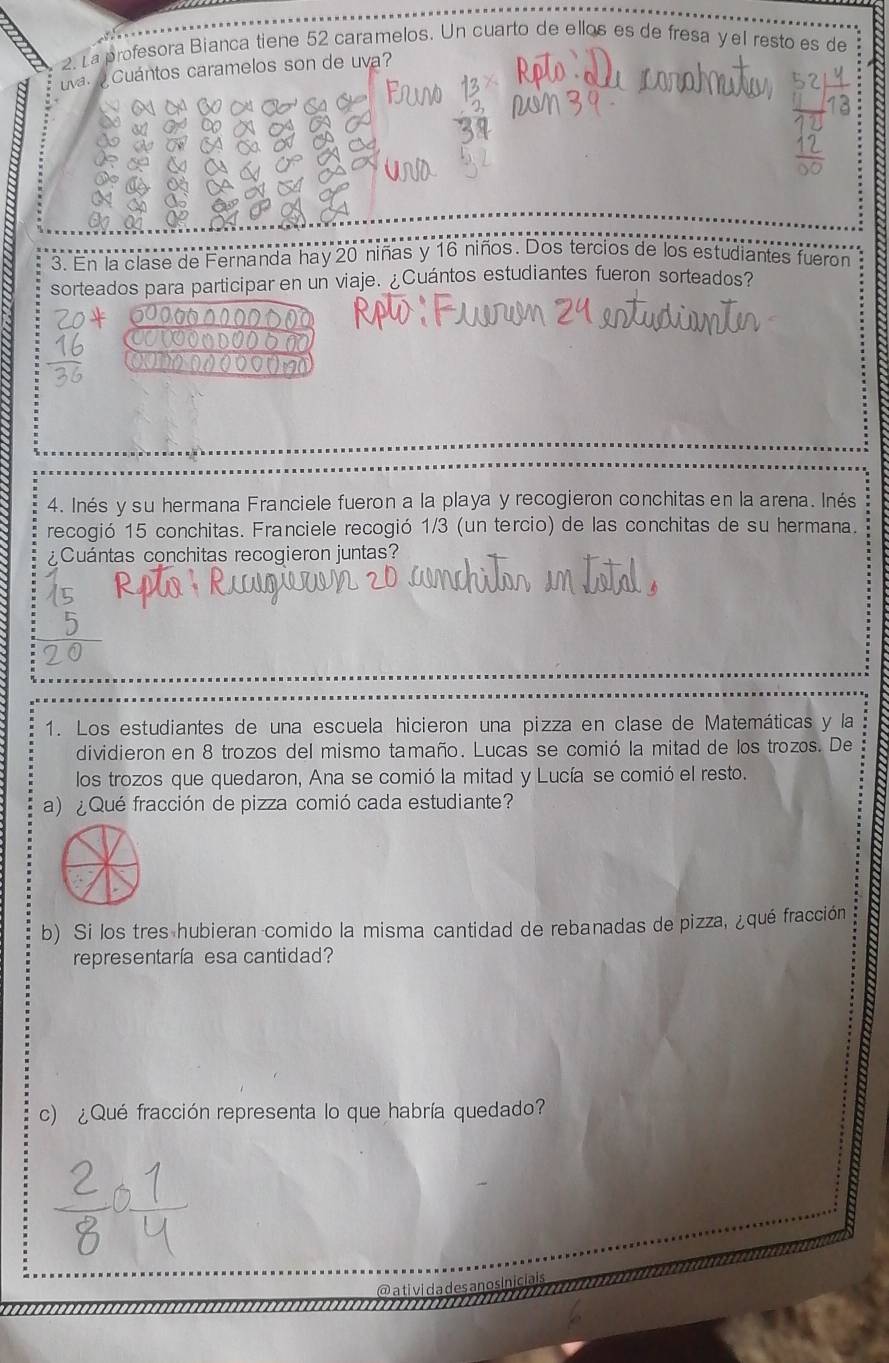 2. La profesora Bianca tiene 52 caramelos. Un cuarto de ellos es de fresa y el resto es de
uva. ¿Cuántos caramelos son de uva?
13 x
3
39
52
uva
Rpta: De
son 39.
52 4
4 13
12
12
00
3. En la clase de Fernanda hay 20 niñas y 16 niños. Dos tercios de los estudiantes fueron
sorteados para participar en un viaje. ¿Cuántos estudiantes fueron sorteados?
20+
16
36
Rpta: Fueron 24 estudiantes
4. Inés y su hermana Franciele fueron a la playa y recogieron conchitas en la arena. Inés
recogió 15 conchitas. Franciele recogió 1/3 (un tercio) de las conchitas de su hermana.
¿Cuántas conchitas recogieron juntas?
1
15
5
20
Rpta: Recogieron 20 conchitas en total.
1. Los estudiantes de una escuela hicieron una pizza en clase de Matemáticas y la
dividieron en 8 trozos del mismo tamaño. Lucas se comió la mitad de los trozos. De
los trozos que quedaron, Ana se comió la mitad y Lucía se comió el resto.
a) ¿Qué fracción de pizza comió cada estudiante?
b) Si los tres hubieran comido la misma cantidad de rebanadas de pizza, ¿qué fracción
representaría esa cantidad?
c) ¿Qué fracción representa lo que habría quedado?
2/8 o 1/4
@atividadesanosiniciais
6